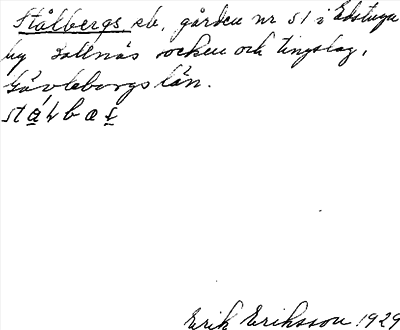 Stålbergs sb. gården nr 51 i Edstuga
by Bollnäs socken och tingslag,
Gävleborgs län.
Erik Eriksson 1929